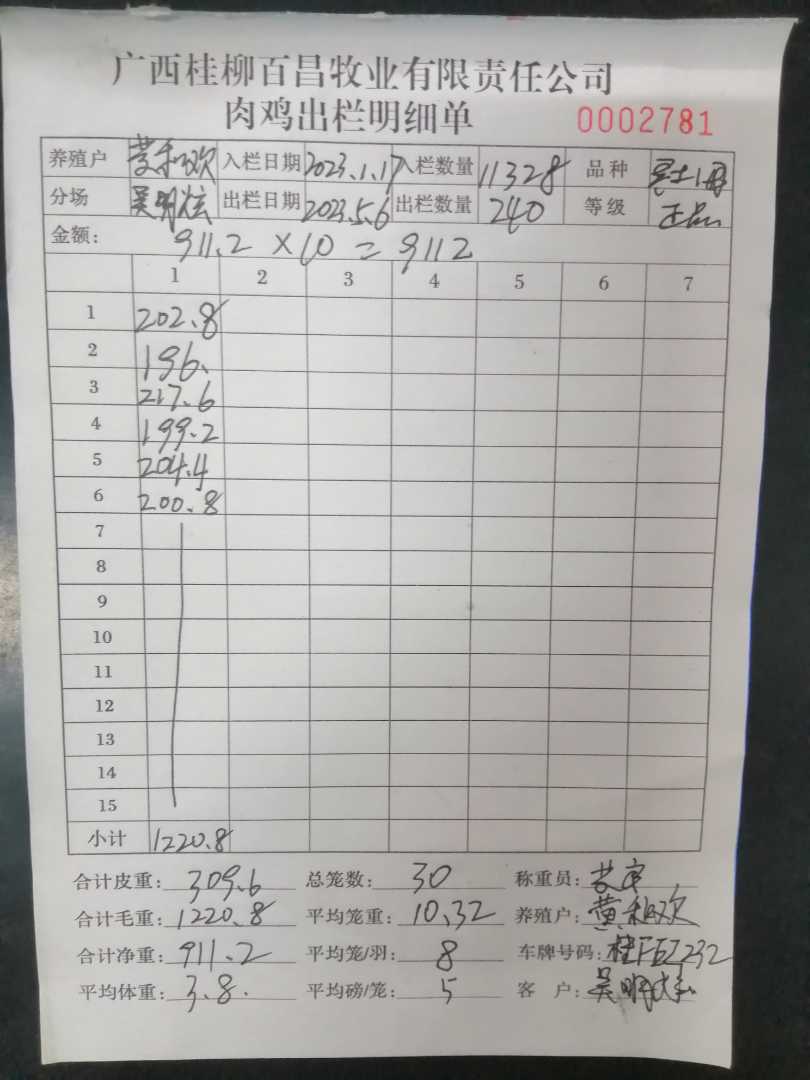 广西桂柳百昌牧业有限责任公司
肉鸡出栏明细单 0002781
养殖户 黄和欢 入栏日期 2023.1.17 入栏数量 11328 品种
分场 吴明炫 出栏日期 2023.5.6 出栏数量 240 等级 正品
金额: 911.2×10=9112
1 2 3 4 5 6 7
1 202.8
2 196.
3 217.6
4 199.2
5 204.4
6 200.8
7
8
9
10
11
12
13
14
15
小计 1220.8
合计皮重: 309.6 总笼数: 30 称重员:
合计毛重: 1220.8 平均笼重: 10.32 养殖户: 黄和欢
合计净重: 911.2 平均笼/羽: 8 车牌号码: 桂FEZ232
平均体重: 3.8. 平均磅/笼: 5 客户: 吴明炫